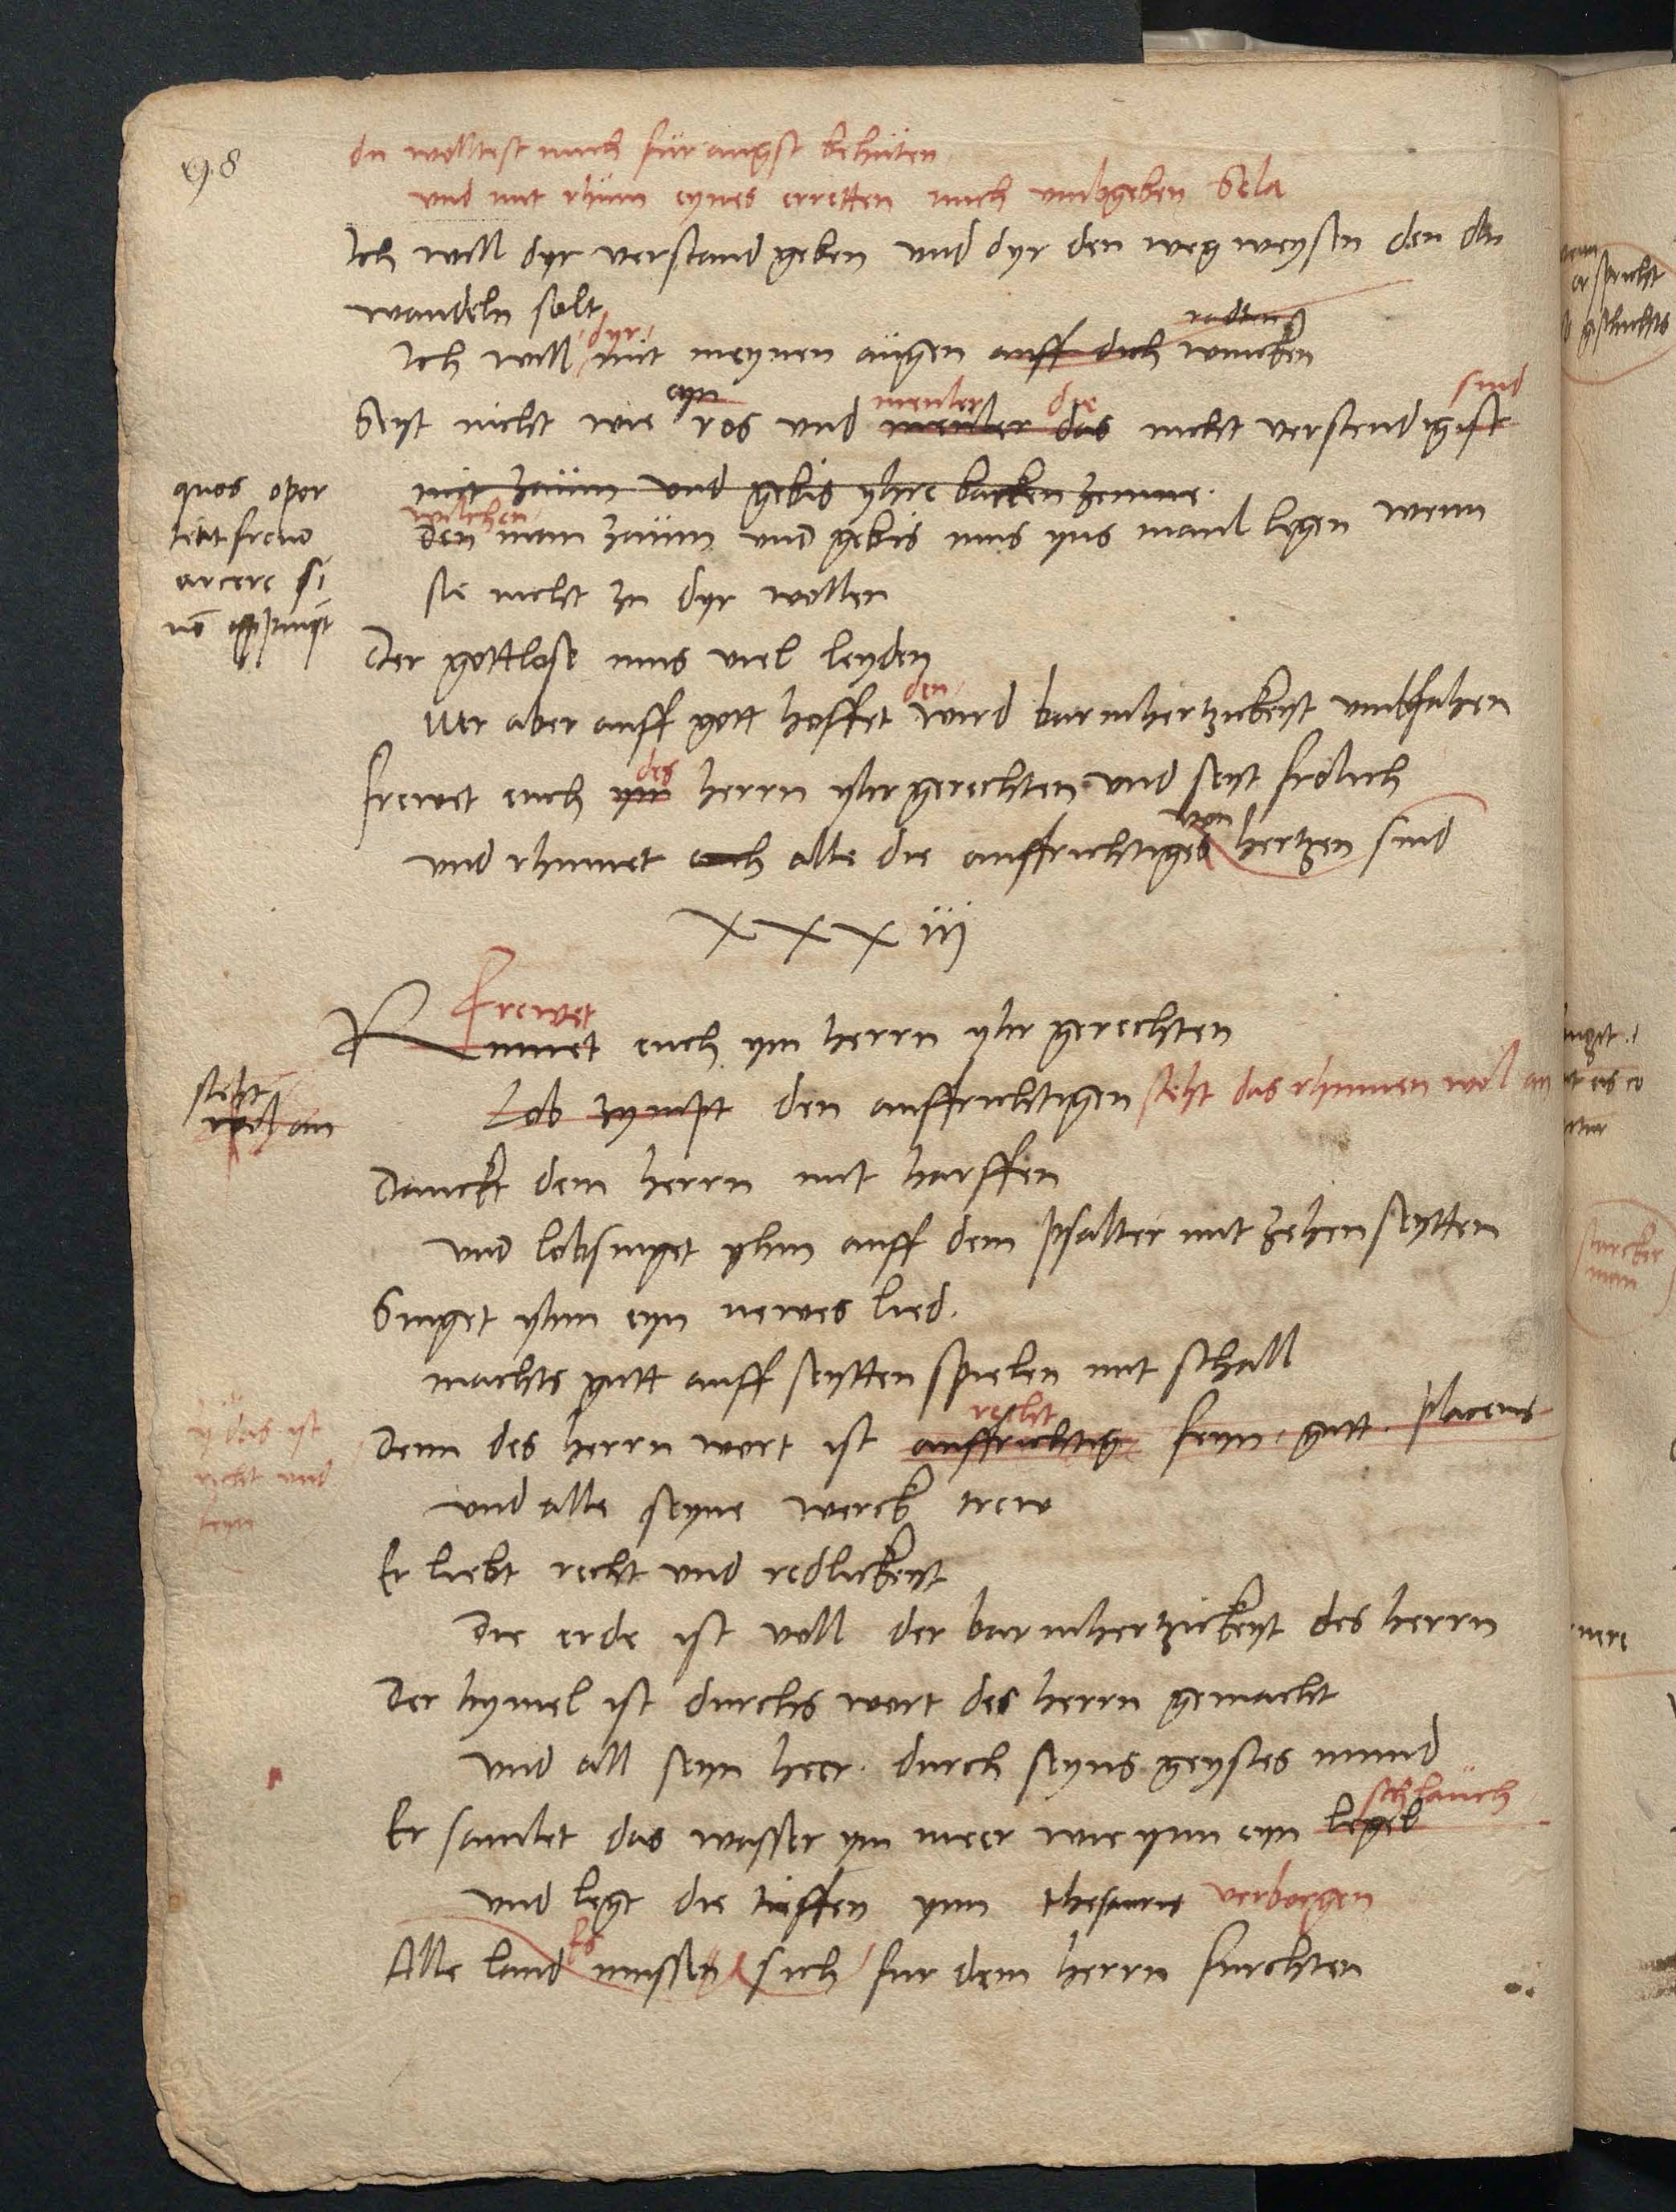 du wolltest mich für angst behüten
und mit rhum eynes erretten mich umbgeben Sela
Ich will dyr verstand geben und dyr den weg weysen den du
wandeln solt
radten
dyr
Ich will mit meynen augen auff dich wincken
eyn meuler die sind
Seyt nicht wie ros und meuler das nicht verstendig ist
mit zaum und gebis yhre backen zemme.
wilchen
den man zaum und gebis mus yns maul legen wenn
sie nicht zu dyr wollen
quos opor
tet freno
arcere si
Der gottlose mus viel leyden
den
Wer aber auff gott hoffet wird barmhertzickeyt umbfahen
des
frewet euch ym herrn yhr gerechten und seyt frölich
von
und rhumet euch alle die auffrichtiges hertzen sind
XXXiij
Frewet
Rhumet euch ym herrn yhr gerechten
steht
wol an
Lob zympt den auffrichtigen steht das rhumen wol an
Danckt dem herrn mit harffen
und lobsinget yhm auff dem psalter mit zehen seytten
Singet yhm eyn newes lied.
machts gutt auff seytten spielen mit schall
recht
Denn des herrn wort ist auffrichtig feyn. gutt. placens
das ist
recht und
feyn
und alle seyne werck trew
Er liebt recht und redlickeyt
Die erde ist voll der barmhertzickeyt des herrn
Der hymel ist durchs wort des herrn gemacht
und all seyn heer. durch seyns geystes mund
schlauch
Er samlet das wasser ym meer wie ynn eyn legel
und legt die tieffen ynn thesauris verborgen
Es
Alle land mussen sich fur dem herrn furchten